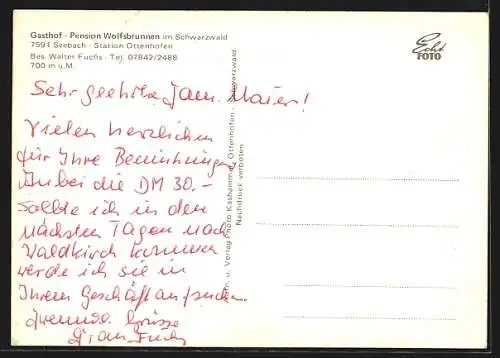 Gasthof - Pension Wolfsbrunnen im Schwarzwald
7591 Seebach - Station Ottenhöfen
Bes. Walter Fuchs - Tel. 07842/2488
700 m ü.M.
Echt
FOTO
Sehr geehrte Fam. Maier!
Vielen herzlichen
für Ihre Bemühungen
Anbei die DM 30.-
Sollte ich in den
nächsten Tagen nach
Waldkirch kommen
werde ich sie in
Ihrem Geschäft aufsuchen
freundl. Grüsse
Frau Fuchs
Aufn. u. Verlag Photo Kashammer, Ottenhöfen - Schwarzwald
Nachdruck verboten